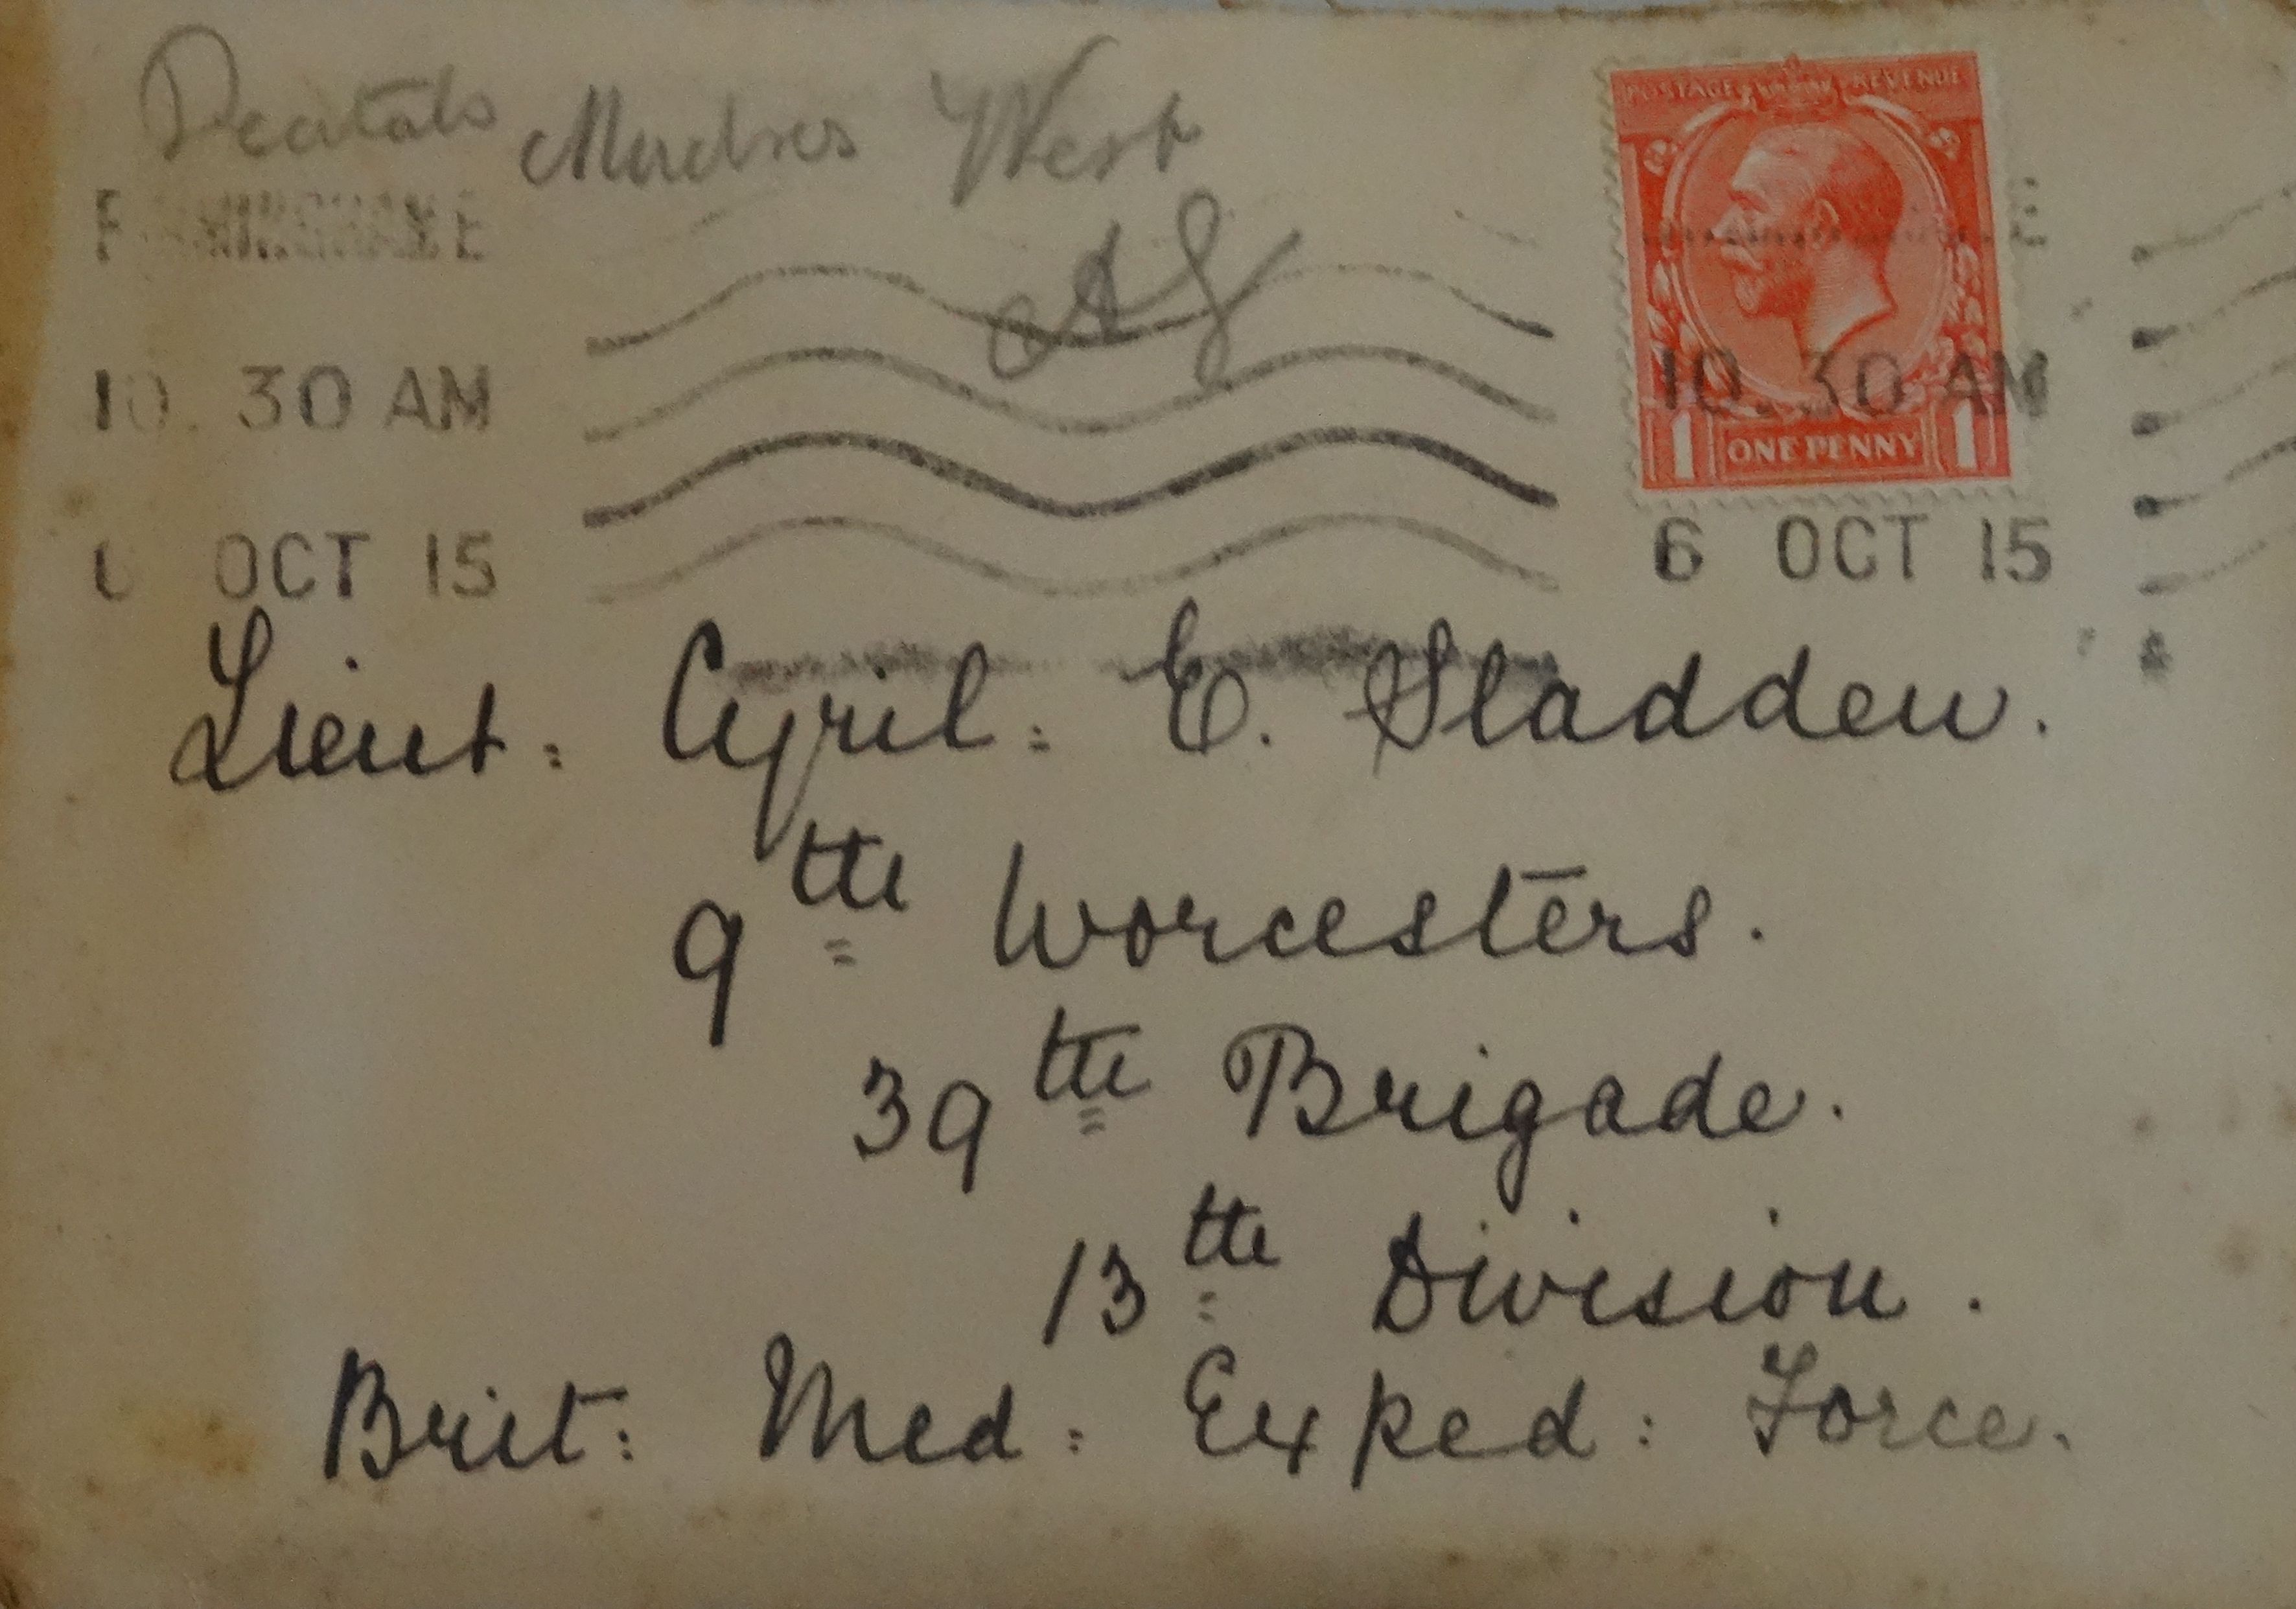 Mudros West
POSTAGE REVENUE
10. 30 AM
10. 30 AM
ONE PENNY
1 1
OCT 15
6 OCT 15
Lieut: Cyril: E. Sladden.
9th Worcesters.
39th Brigade.
13th Division.
Brit: Med: Exped: Force.